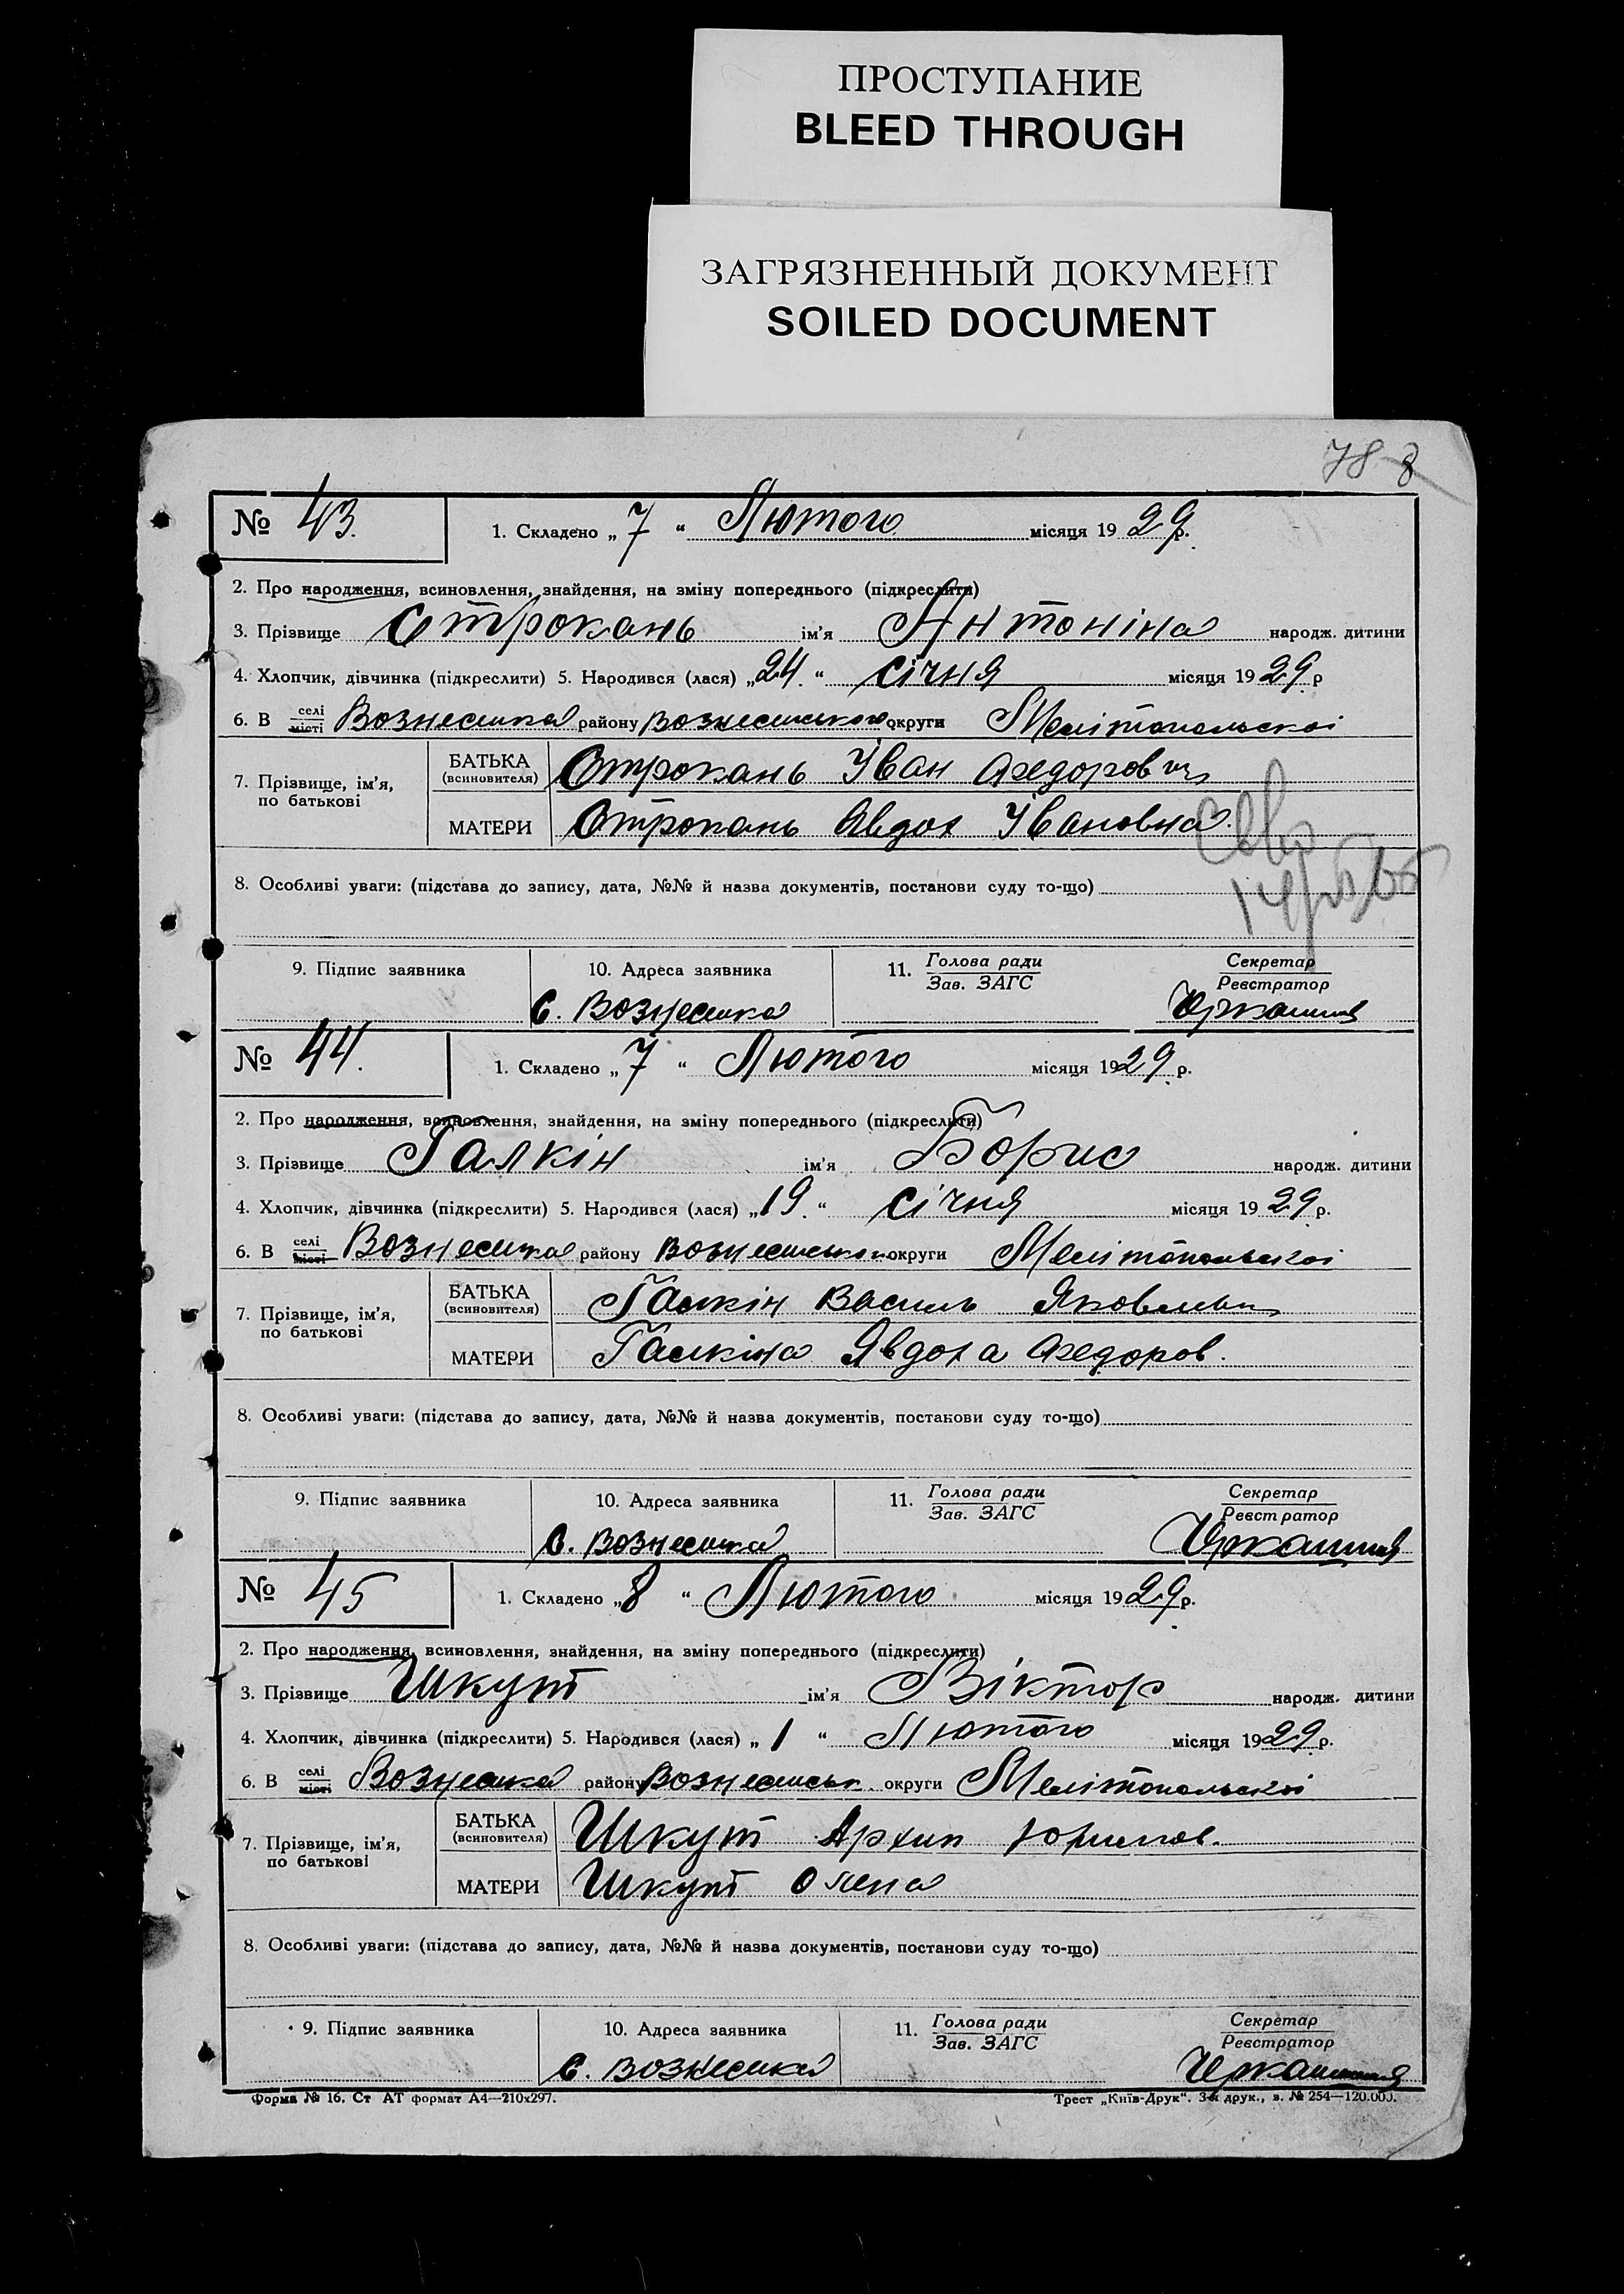 ПРОСТУПАНИЕ
BLEED THROUGH
ЗАГРЯЗНЕННЫЙ ДОКУМЕНТ
SOILED DOCUMENT
78 8
№ 43. 1. Складено „7“ Лютого місяця 1929 р.
2. Про народження, всиновлення, знайдення, на зміну попереднього (підкреслити)
3. Прізвище Строкань ім'я Антоніна народж. дитини
4. Хлопчик, дівчинка (підкреслити) 5. Народився (лася) „24.“ січня місяця 1929 р
6. В селі/місті Вознесенка району Вознесенського округи Мелітопольскоі
7. Прізвище, ім'я, по батькові БАТЬКА (всиновителя) Строкань Іван Федорович
МАТЕРИ Строкань Явдох Івановна.
8. Особливі уваги: (підстава до запису, дата, №№ й назва документів, постанови суду то-що)
9. Підпис заявника 10. Адреса заявника 11. Голова ради/Зав. ЗАГС Секретар/Реєстратор
С. Вознесенка
№ 44. 1. Складено „7“ Лютого місяця 1929 р.
2. Про народження, всиновлення, знайдення, на зміну попереднього (підкреслити)
3. Прізвище Галкін ім'я Борис народж. дитини
4. Хлопчик, дівчинка (підкреслити) 5. Народився (лася) „19.“ січня місяця 1929 р.
6. В селі/місті Вознесенка району Вознесенського округи Мелітопольскоі
7. Прізвище, ім'я, по батькові БАТЬКА (всиновителя) Галкін Василь Яковлевич
МАТЕРИ Галкіна Явдоха Федоров.
8. Особливі уваги: (підстава до запису, дата, №№ й назва документів, постанови суду то-що)
9. Підпис заявника 10. Адреса заявника 11. Голова ради/Зав. ЗАГС Секретар/Реєстратор
С. Вознесенка
№ 45 1. Складено „8“ Лютого місяця 1929 р.
2. Про народження, всиновлення, знайдення, на зміну попереднього (підкреслити)
3. Прізвище Шкут ім'я Віктор народж. дитини
4. Хлопчик, дівчинка (підкреслити) 5. Народився (лася) „1“ Лютого місяця 1929 р.
6. В селі/місті Вознесенка району Вознесенськ. округи Мелітопольскоі
7. Прізвище, ім'я, по батькові БАТЬКА (всиновителя) Шкут Архип
МАТЕРИ Шкут Олена
8. Особливі уваги: (підстава до запису, дата, №№ й назва документів, постанови суду то-що)
9. Підпис заявника 10. Адреса заявника 11. Голова ради/Зав. ЗАГС Секретар/Реєстратор
С. Вознесенка
Форма № 16. Ст АТ формат А4—210х297. Трест „Київ-Друк“. 3-я друк., з. № 254—120.000.